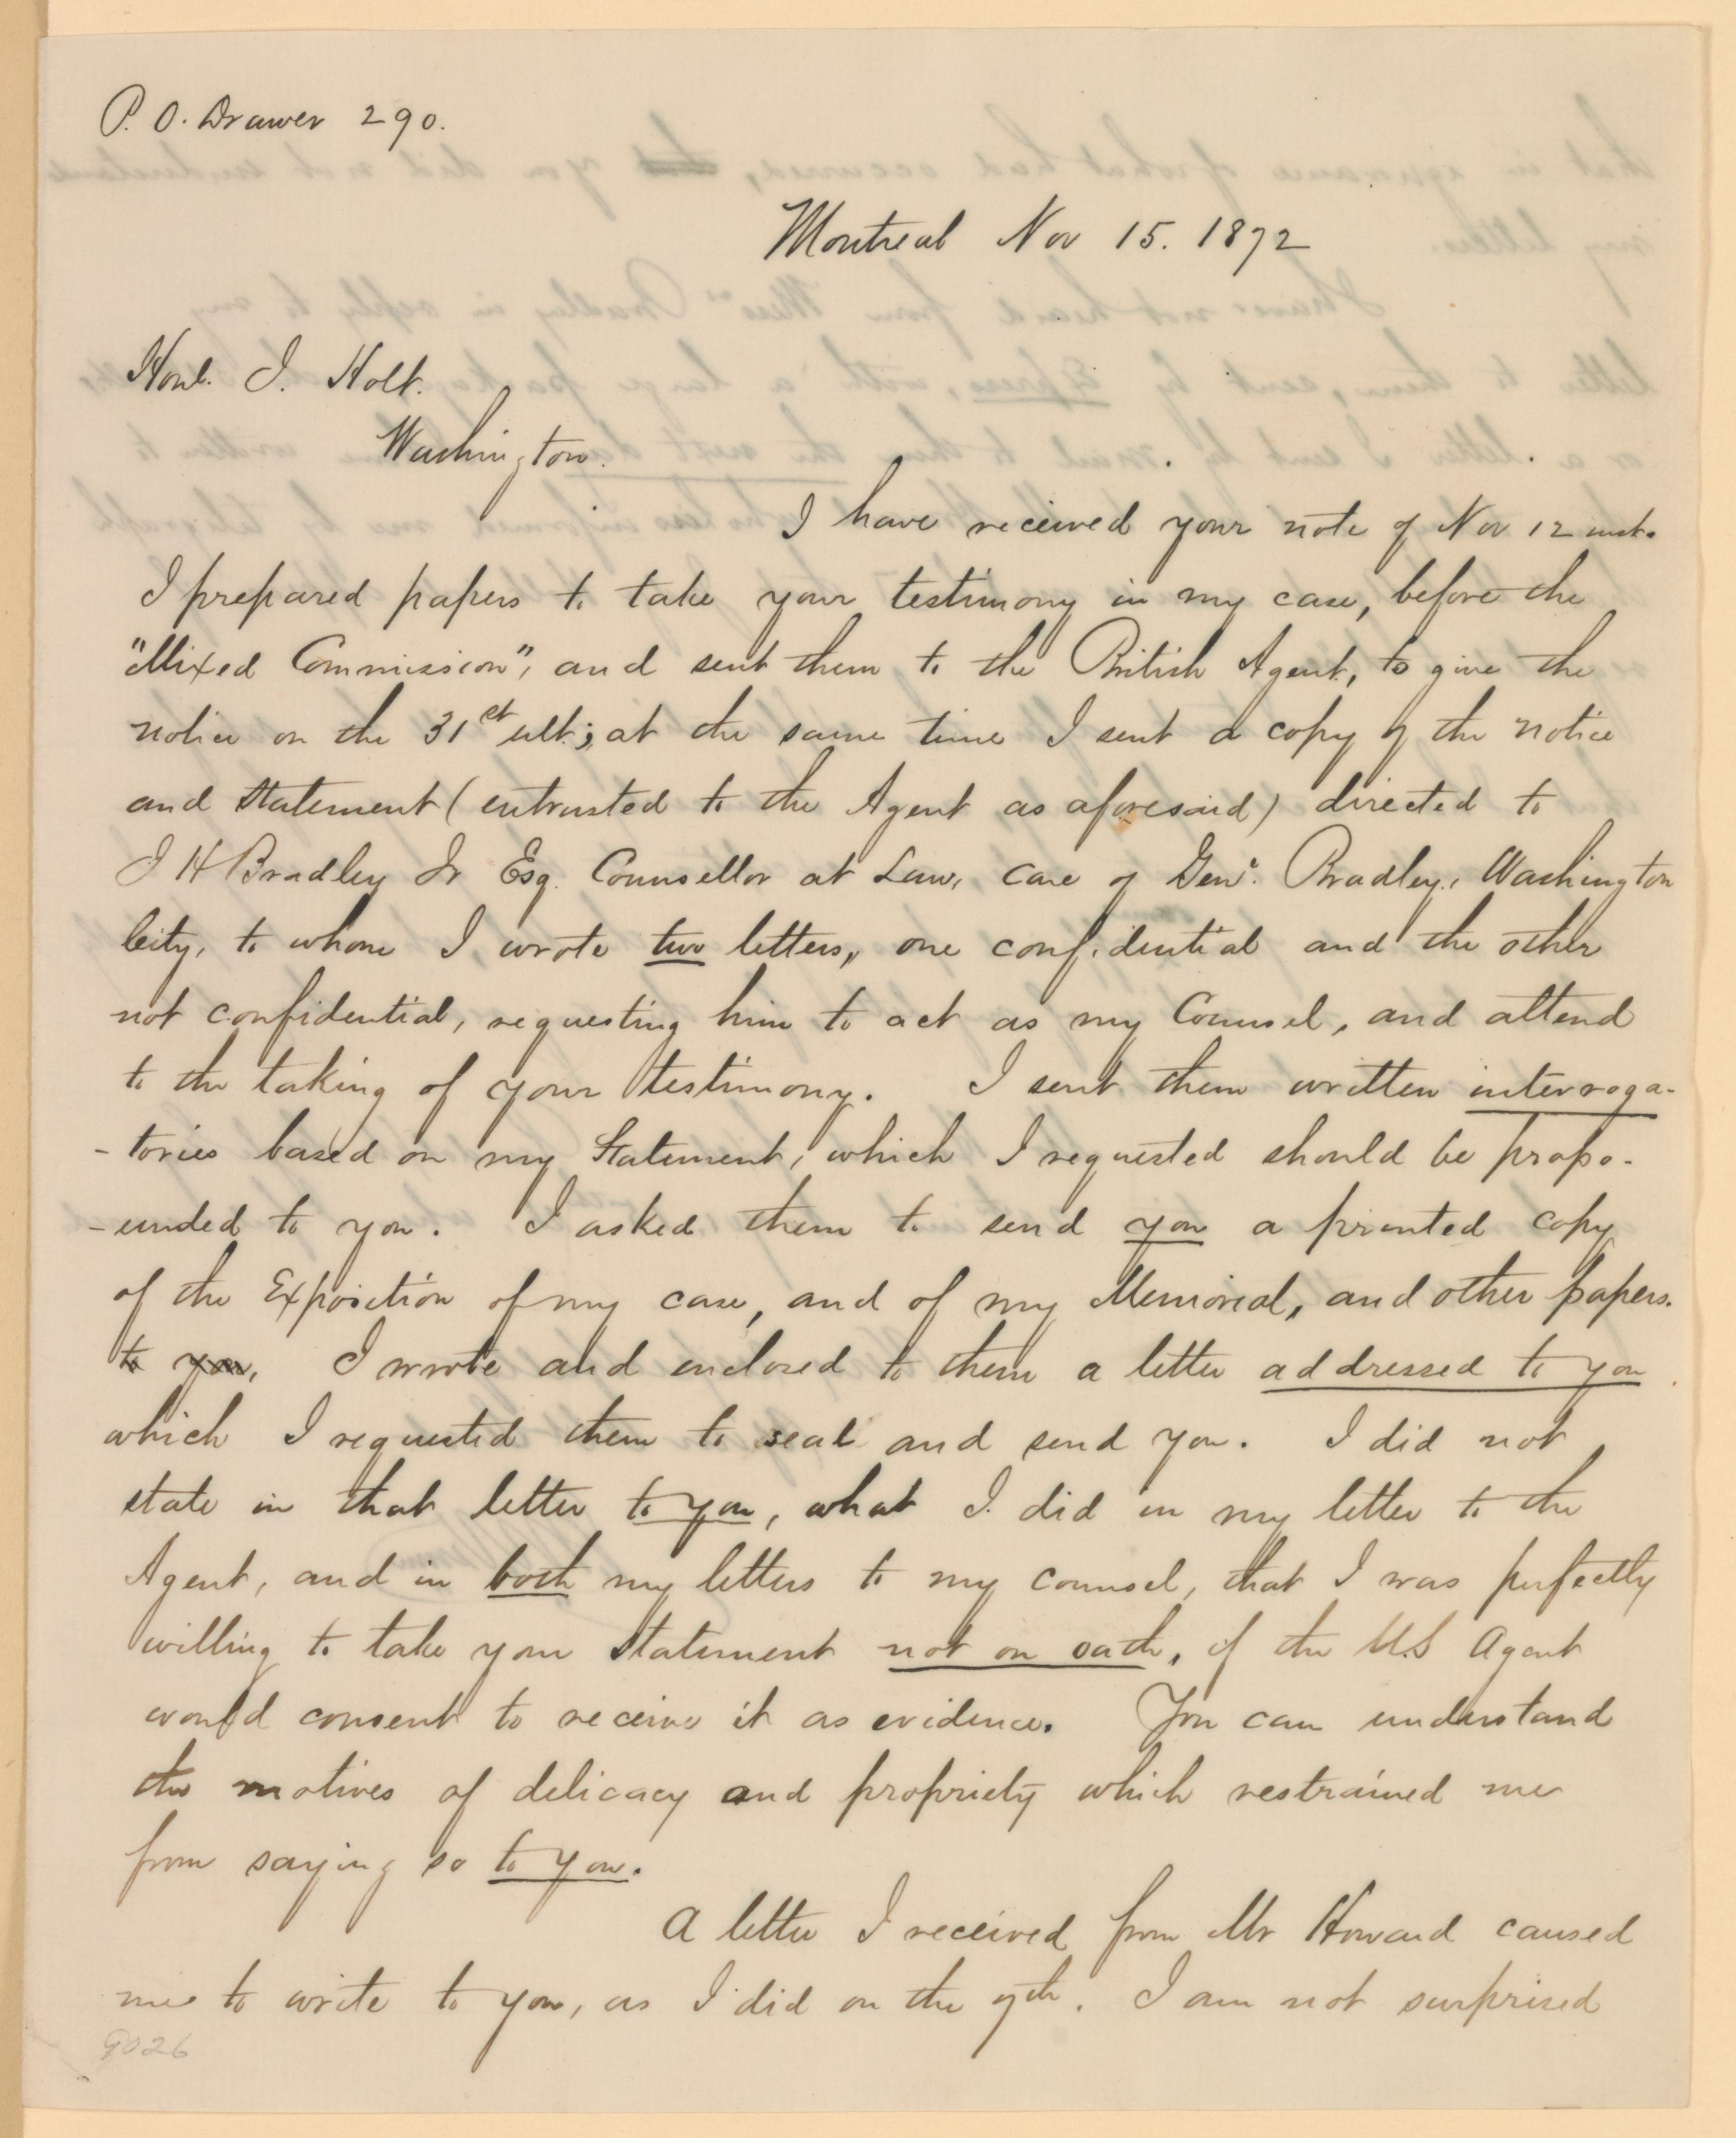 P. O. Drawer 290.
Montreal Nov 15. 1872
Honl. J. Holt.
Washington.
I have received your note of Nov 12 inst.
I prepared papers to take your testimony in my case, before the
"Mixed Commission", and sent them to the British Agent, to give the
notice on the 31st ult; at the same time I sent a copy of the notice
and Statement (entrusted to the Agent as aforesaid) directed to
J H Bradley Jr Esq. Counsellor at Law, care of Genl. Bradley, Washington
City, to whom I wrote two letters, one confidential and the other
not confidential, requesting him to act as my Counsel, and attend
to the taking of your testimony. I sent them written interroga-
-tories based on my Statement, which I requested should be propo-
-unded to you. I asked them to send you a printed copy
of the Exposition of my case, and of my Memorial, and other papers.
to you. I wrote and enclosed to them a letter addressed to you
which I requested them to seal and send you. I did not
state in that letter to you, what I did in my letter to the
Agent, and in both my letters to my counsel, that I was perfectly
willing to take your Statement not on oath, if the U.S Agent
would consent to receive it as evidence. You can understand
the motives of delicacy and propriety which restrained me
from saying so to you.
A letter I received from Mr Howard caused
me to write to you, as I did on the 9th. I am not surprised
9026